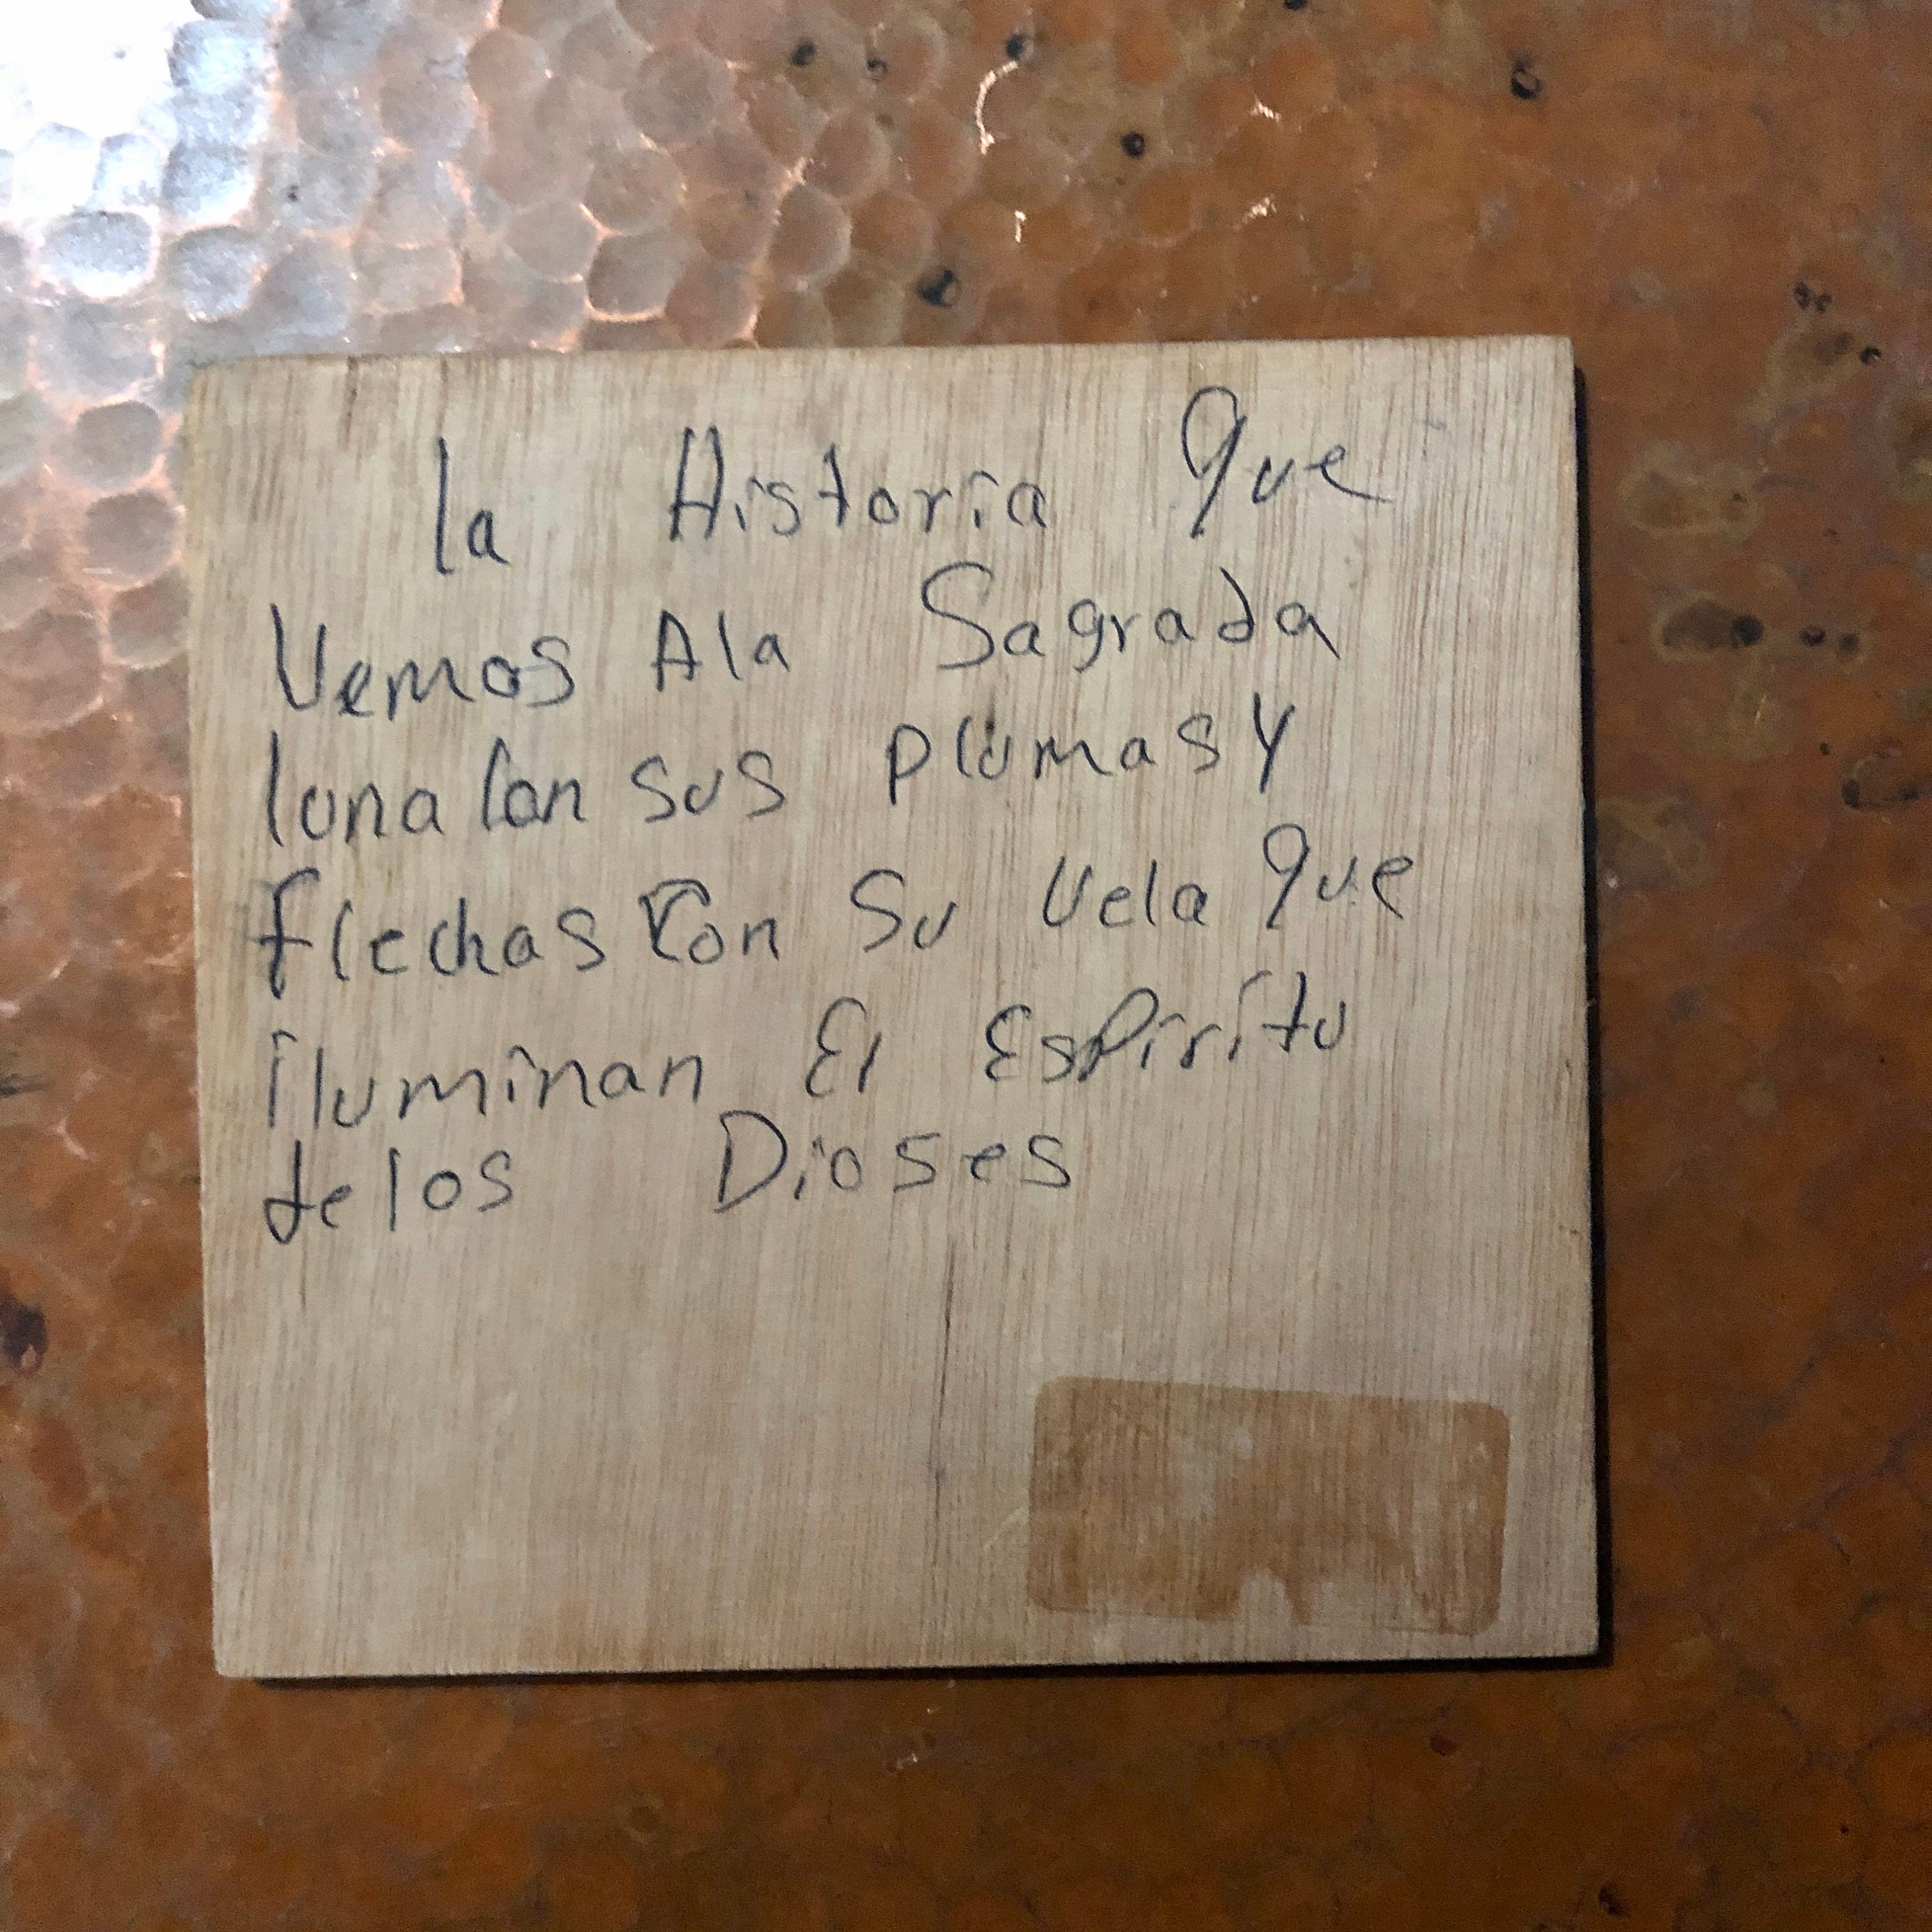 la Historia Que
Vemos Ala Sagrada
luna Con sus plumas Y
flechas Con Su Vela Que
iluminan El Espiritu
de los Dioses